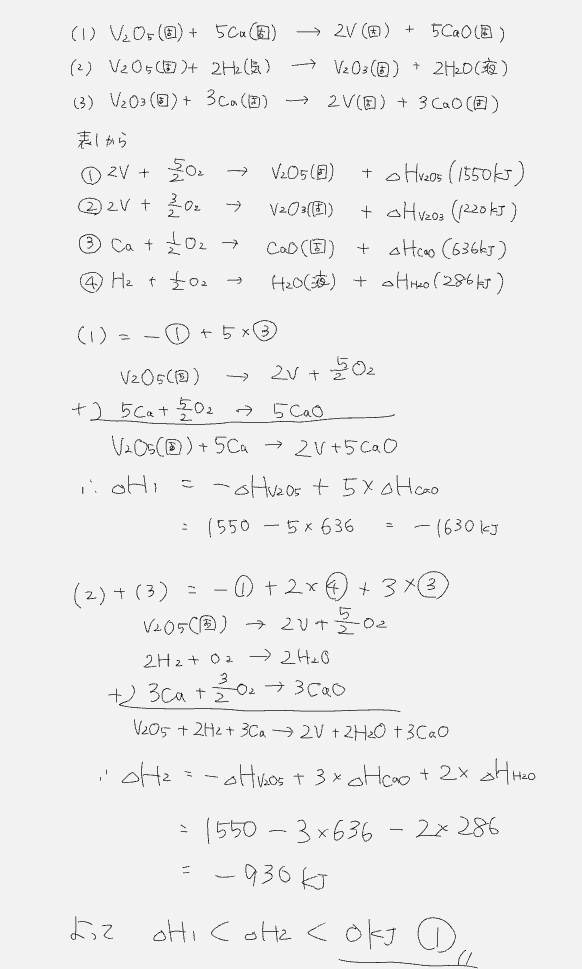 (1) V₂O₅(固) + 5Ca(固) → 2V(固) + 5CaO(固)
(2) V₂O₅(固) + 2H₂(気) → V₂O₃(固) + 2H₂O(液)
(3) V₂O₃(固) + 3Ca(固) → 2V(固) + 3CaO(固)
表1から
① 2V + 5/2 O₂ → V₂O₅(固) + ΔHV₂O₅ (1550kJ)
② 2V + 3/2 O₂ → V₂O₃(固) + ΔHV₂O₃ (1220kJ)
③ Ca + 1/2 O₂ → CaO(固) + ΔHCaO (636kJ)
④ H₂ + 1/2 O₂ → H₂O(液) + ΔHH₂O (286kJ)
(1) = -① + 5×③
V₂O₅(固) → 2V + 5/2 O₂
+) 5Ca + 5/2 O₂ → 5CaO
V₂O₅(固) + 5Ca → 2V + 5CaO
∴ ΔH₁ = -ΔHV₂O₅ + 5×ΔHCaO
= 1550 - 5×636 = -1630kJ
(2)+(3) = -① + 2×④ + 3×③
V₂O₅(固) → 2V + 5/2 O₂
2H₂ + O₂ → 2H₂O
+) 3Ca + 3/2 O₂ → 3CaO
V₂O₅ + 2H₂ + 3Ca → 2V + 2H₂O + 3CaO
∴ ΔH₂ = -ΔHV₂O₅ + 3×ΔHCaO + 2×ΔHH₂O
= 1550 - 3×636 - 2×286
= -930kJ
よって ΔH₁ < ΔH₂ < 0kJ ①